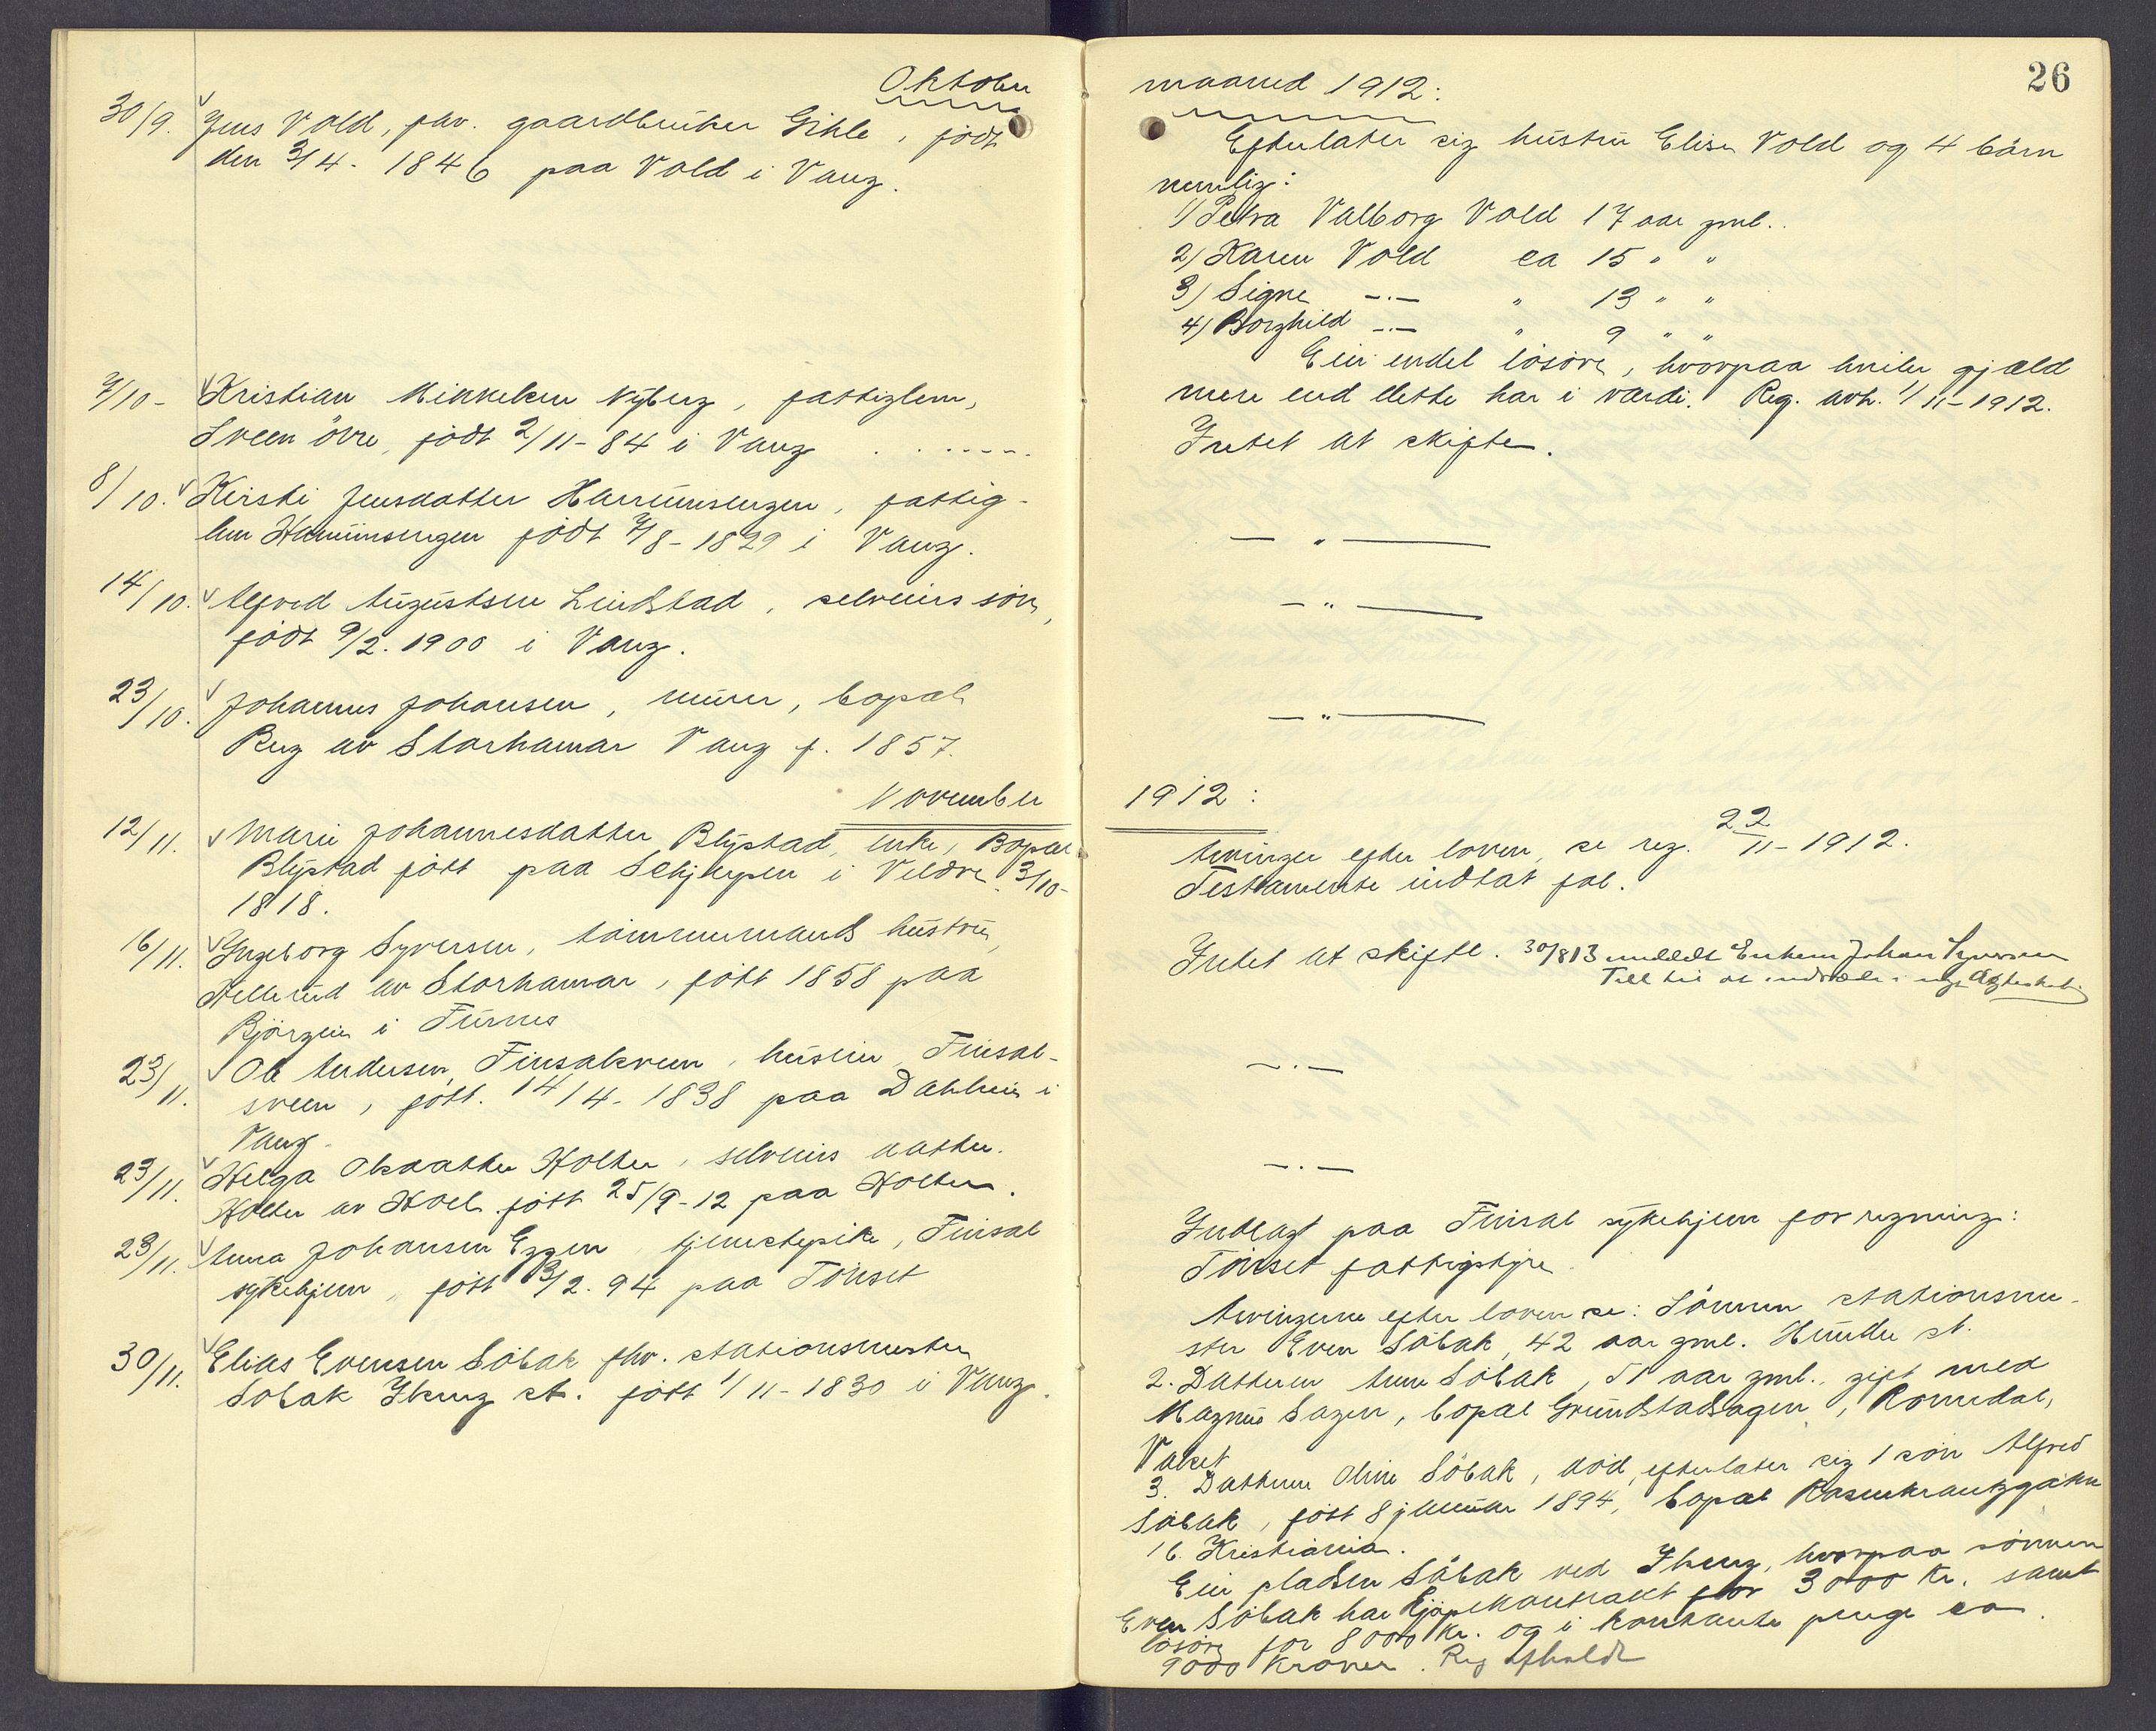 Oktober
30/9. Jens Vold, fhv. gaardbruker Gihle, født
den 3/4- 1846 paa Vold i Vang.
7/10- Kristian Mikkelsen Nyberg, fattiglem,
Sveen övre, födt 2/11-84 i Vang
8/10. Kirsti Jensdatter Hammersengen, fattig-
lem födt 7/8-1829 i Vang.
14/10. Alfred Augustsen Lindstad, selveiers sön,
födt 9/2. 1900 i Vang.
23/10. Johannes Johansen, murer, bopæl
Rug av Storhamar Vang f. 1857.
November
12/11. Marie Johannesdatter Blystad, enke, Bopæl
Blystad fött paa Schjerpen i Veldre 3/10-
1818.
16/11. Ingeborg Syversen, tömmermands hustru,
av Storhamar, fött 1858 paa
Björgein i Furnes
23/11. Ole Andersen Finsalsveen, huseier Finsal-
sveen, fött. 14/4- 1838 paa Dahlein i
Vang.
23/11. Helga Olsdatter Holter, selveiers datter.
Holter av Hoel fött 25/9-12 paa Holter.
23/11. Anna Johansen Eggen tjenestepike, Finsal
sykehjem, fött 13/2. 94 paa Tönset
30/11. Elias Evensen Söbak fhv. stationsmester
Söbak Ilseng st. fött 1/11-1830 i Vang.
26
maaned 1912:
Efterlater sig hustru Elise Vold og 4 börn
nemlig:
1) Petra Valborg Vold 17 aar gml..
2) Karen Vold ca 15 " "
3) Signe -.- " 13 " "
4) Borghild -.- " 9 " "
Eier endel lösöre, hvorpaa hviler gjæld
mere end dette har i værdi. Reg. avh. 1/11-1912.
Intet at skifte.
— " —
- " —
— " —
1912:
Arvinger efter loven, se reg. 22/11-1912.
Testamente indtat fol.
Intet at skifte. 30/813 meddelt Enkem. Johan Syversen
Till. til at indtræde i nyt Ægteskab.
-.-
-.-
Indlagt paa Finsal sykehjem for regning:
Tönset fattigstyre
Arvingerne efter loven er: Sönnen stationsme-
ster Even Söbak, 42 aar gml. Hunder st.
2. Datteren Anne Söbak, 51 aar gml., gift med
Magnus Sagen, bopæl Grundstadsagen, Romedal,
Valset
3. Datteren Oline Söbak, död, efterlater sig 1 sön Alfred
Söbak, fött 8 januar 1894, bopæl Rosenkrantzgaten
16. Kristiania.
Eier pladsen Söbak ved Ilseng, hvorpaa sönnen
Even Söbak har kjöpekontrakt for 3000 kr. samt
lösöre for 8000 kr. og i kontante penge ca
9000 kroner. Reg afholdt